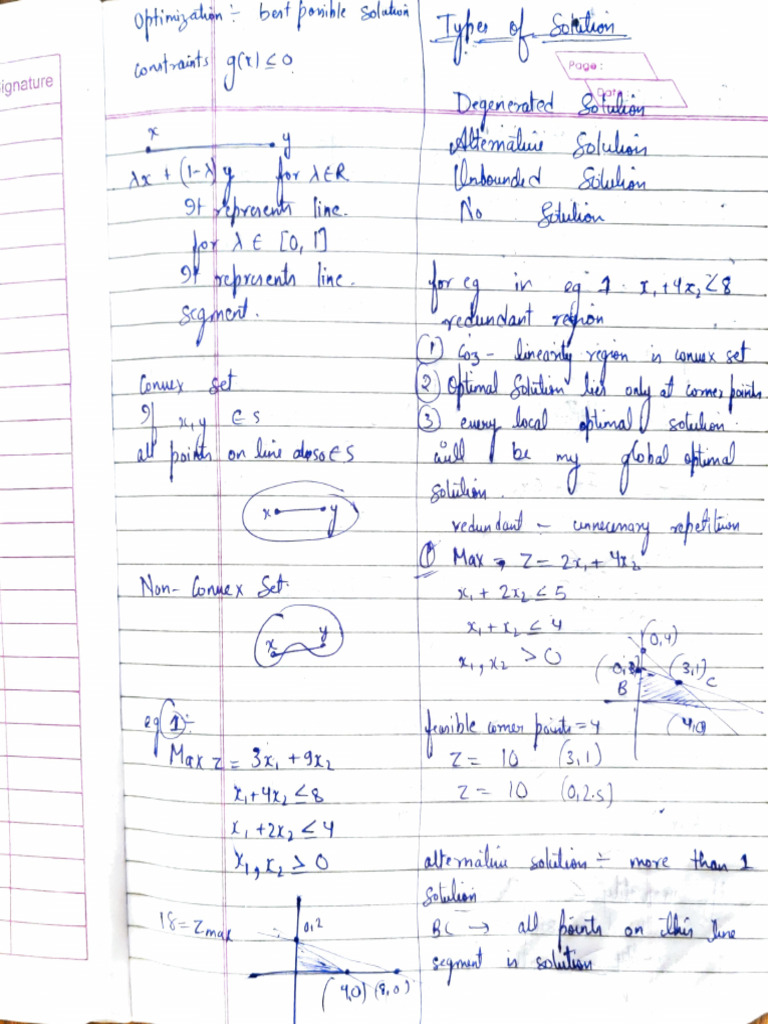 ignature
Optimization :- best possible solution
constraints g(x) ≤ 0
x y
λx + (1-λ) y for λ∈R
It represents line.
for λ ∈ [0, 1]
It represents line
segment.
Convex set
If x,y ∈ S
all points on line also ∈ S
x y
Non-Convex Set
x y
eg ① :-
Max z = 3x₁ + 9x₂
x₁+4x₂ ≤ 8
x₁ +2x₂ ≤ 4
x₁, x₂ ≥ 0
18 = Zmax
0,2
(4,0) (8,0)
Types of Solution
Page:
Degenerated Solution
Alternative Solution
Unbounded Solution
No Solution
for eg in eq 1 x₁+4x₂ ≤ 8
redundant region
① linearity region is convex set
② Optimal Solution lies only at corner points
③ every local optimal solution
will be my global optimal
solution.
redundant - unnecessary repetition
① Max Z = 2x₁ + 4x₂
x₁ + 2x₂ ≤ 5
x₁ + x₂ ≤ 4
x₁, x₂ > 0
(0,4)
(3,1) C
B
feasible corner points = 4
Z = 10 (3,1)
Z = 10 (0,2.5)
alternative solution :- more than 1
solution
BC → all points on this line
segment is solution